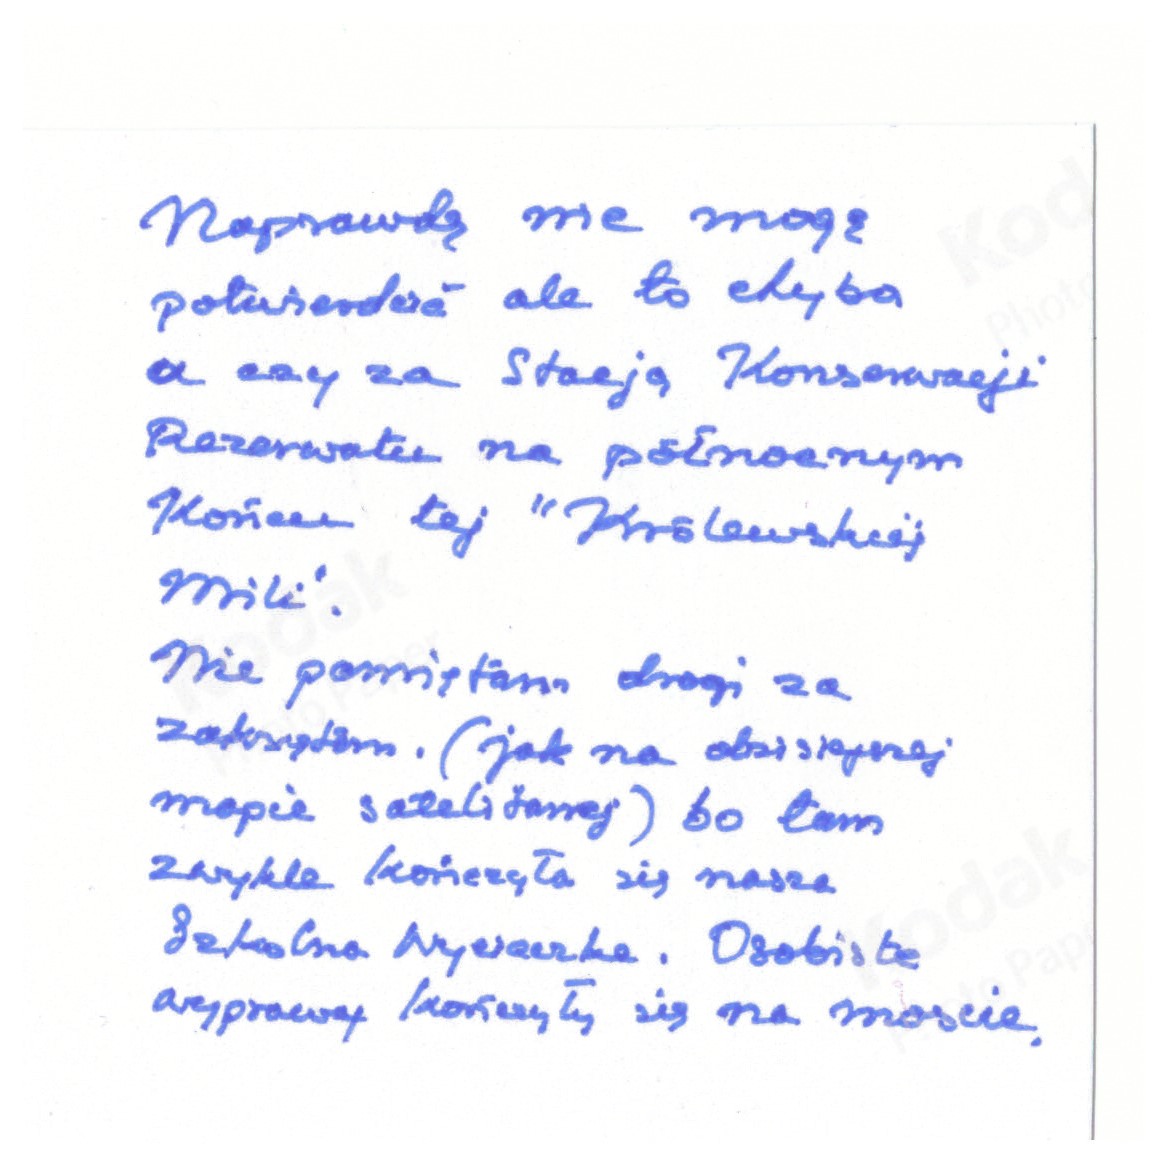 Naprawdę nie mogę
potwierdzić ale to chyba
a czy za Stacją Konserwacji
Rezerwatu na północnym
Końcu tej "Królewskiej
Mili".
Nie pamiętam drogi za
zakrętem. (jak na dzisiejszej
mapie satelitarnej) bo tam
zwykle kończyła się nasza
Szkolna Wycieczka. Osobiste
wyprawy kończyły się na moście.
Kodak
Photo Paper